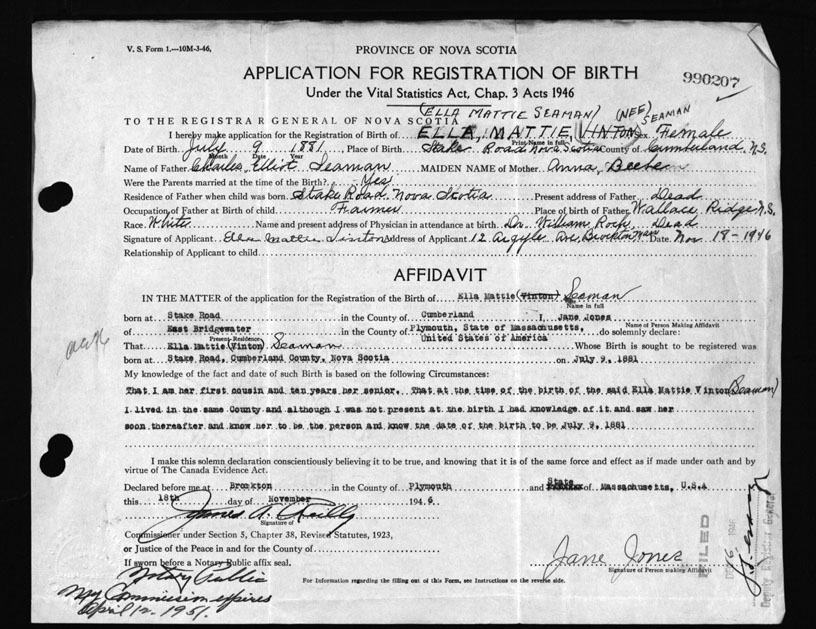 V. S. Form 1.—10M-3-46.
PROVINCE OF NOVA SCOTIA
APPLICATION FOR REGISTRATION OF BIRTH
990207
Under the Vital Statistics Act, Chap. 3 Acts 1946
(ELLA MATTIE SEAMAN) (NEE) SEAMAN
TO THE REGISTRAR GENERAL OF NOVA SCOTIA
I hereby make application for the Registration of Birth of ELLA, MATTIE, VINTON Sex Female
Print Name in full
Date of Birth July 9 1881, Place of Birth Stake Road Nova Scotia County of Cumberland N.S.
Month Date Year
Name of Father Charles, Elliot Seaman MAIDEN NAME of Mother Anna, Beebe
Were the Parents married at the time of the Birth? Yes
Residence of Father when child was born Stake Road, Nova Scotia Present address of Father Dead
Occupation of Father at Birth of child Farmer Place of birth of Father Wallace Ridge N.S.
Race White Name and present address of Physician in attendance at birth Dr. William Dead
Signature of Applicant Ella Mattie Vinton Address of Applicant 12 Argyle Ave, Brockton Mass Date Nov 18-1946
Relationship of Applicant to child
AFFIDAVIT
IN THE MATTER of the application for the Registration of the Birth of Ella Mattie (Vinton) Seaman
Name in full
born at Stake Road in the County of Cumberland I, Jane Jones
Name of Person Making Affidavit
of East Bridgewater in the County of Plymouth, State of Massachusetts, do solemnly declare:
Present Residence
United States of America
That Ella Mattie (Vinton) Seaman Whose Birth is sought to be registered was
born at Stake Road, Cumberland County, Nova Scotia on July 9, 1881
My knowledge of the fact and date of such Birth is based on the following Circumstances:
That I am her first cousin and ten years her senior. That at the time of the birth of the said Ella Mattie Vinton (Seaman)
I lived in the same County and although I was not present at the birth I had knowledge of it and saw her
soon thereafter and know her to be the person and know the date of the birth to be July 9, 1881
I make this solemn declaration conscientiously believing it to be true, and knowing that it is of the same force and effect as if made under oath and by
virtue of The Canada Evidence Act.
Declared before me at Brockton in the County of Plymouth and State of Massachusetts, U.S.A
this 18th day of November 1946
James A. Reilly
Signature of
Commissioner under Section 5, Chapter 38, Revised Statutes, 1923,
or Justice of the Peace in and for the County of
If sworn before a Notary Public affix seal.
Jane Jones
Signature of Person making Affidavit
Notary Public
My Commission expires
April 12. 1951.
For Information regarding the filling out of this Form, see Instructions on the reverse side.
FILED